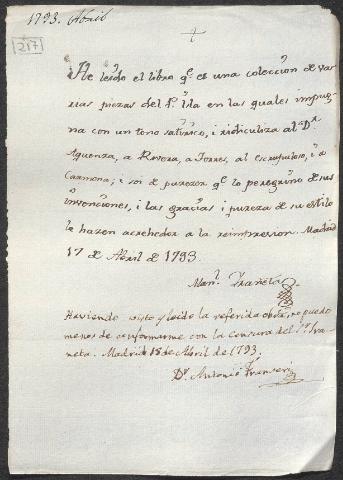 1793. Abril
217
+
He leído el libro q.e es una coleccion de var
rias piezas del P. Isla en las quales impug
na con un tono satirico, i ridiculiza al D.r
Aquenza, a Rivera, a Torres, al escrupuloso, i a
Carmona; i soi de parezer q.e lo peregrino de sus
invenciones, i las gracias i pureza de su estilo
le hazen acrehedor a la reimpresion. Madrid
17 de Abril de 1793.
Man.l Trañeta
Haviendo visto y leido la referida obra, no puedo
menos de conformarme con la censura del S.r Tra
neta. Madrid 18 de Abril de 1793.
D.n Antonio